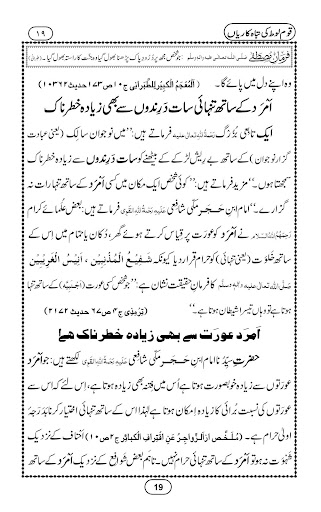 قومِ لوط کی تباہ کاریاں ۱۹
فرمانِ مصطفٰے صلی اللہ تعالیٰ علیہ واٰلہ وسلم: جو شخص مجھ پر دُرُودِ پاک پڑھنا بھول گیا وہ جنت کا راستہ بھول گیا۔ (طبرانی)
وہ اپنے دل میں پائے گا۔ (اَلْمُعْجَمُ الْكَبِيْر لِلطَّبَرانِى ج۱۰ ص۱۷۳ حدیث ۱۰۳۶۲)
اَمْرَد کے ساتھ تنہائی سات دَرِندوں سے بھی زیادہ خطرناک
ایک تابعی بُزُرگ رَحمَۃُ اللہِ تعالیٰ علیہ فرماتے ہیں: ’’میں نوجوان سالِک (یعنی عبادت
گزار نوجوان) کے ساتھ بے رِیش لڑکے کے بیٹھنے کو سات دَرِندوں سے زیادہ خطرناک
سمجھتا ہوں۔‘‘ مزید فرماتے ہیں: ’’کوئی شخص ایک مکان میں کسی اَمْرَد کے ساتھ تنہا رات نہ
گزارے۔‘‘ امام ابنِ حَجَر مکّی شافعی علیہ رحمۃ اللہ القوی فرماتے ہیں: بعض عُلَمائے کرام
رَحِمَہُمُ اللہُ السَّلَام نے اَمْرَد کو عورت پر قِیاس کرتے ہوئے گھر، دُکان یا حَمّام میں اِس کے
ساتھ خَلْوَت (یعنی تنہائی) کو حرام قرار دیا کیونکہ شَفِيْعُ الْمُذْنِبِيْن ، اَنِيْسُ الْغَرِيْبِيْن
صلَّی اللہ تعالیٰ علیہ واٰلہٖ وسلَّم کا فرمانِ حقیقت نشان ہے: ’’جو شخص کسی عورت (اَجْنَبِیَّہ) کے ساتھ تنہا
ہوتا ہے تو وہاں تیسرا شیطان ہوتا ہے۔‘‘ (تِرمِذی ج۴ ص۶۷ حدیث ۲۱۷۲)
اَمرَد عورَت سے بھی زیادہ خطرناک ھے!
حضرتِ سیِّدُنا امام ابنِ حَجَر مکّی شافعی علیہ رحمۃ اللہ القوی لکھتے ہیں: جو اَمْرَد
عورَتوں سے زیادہ خوبصورت ہوتا ہے اُس میں فِتنہ بھی زیادہ ہوتا ہے، اِس لئے کہ اس سے
عورَتوں کی نسبت بُرائی کا زیادہ امکان ہوتا ہے لہٰذا اس کے ساتھ تنہائی اختیار کرنا بَدَرَجَۂ
اَولیٰ حرام ہے۔ (مُلَخَّص اَز اَلزَّواجِرُ عَنِ اقْتِرافِ الْكَبَائِر ج۲ ص۱۰) اَحناف کے نزدیک
شَہْوَت نہ ہو تو اَمْرَد کے ساتھ تنہائی حرام نہیں۔ تاہم بعض شوافِع کے نزدیک اَمْرَد کے ساتھ
19